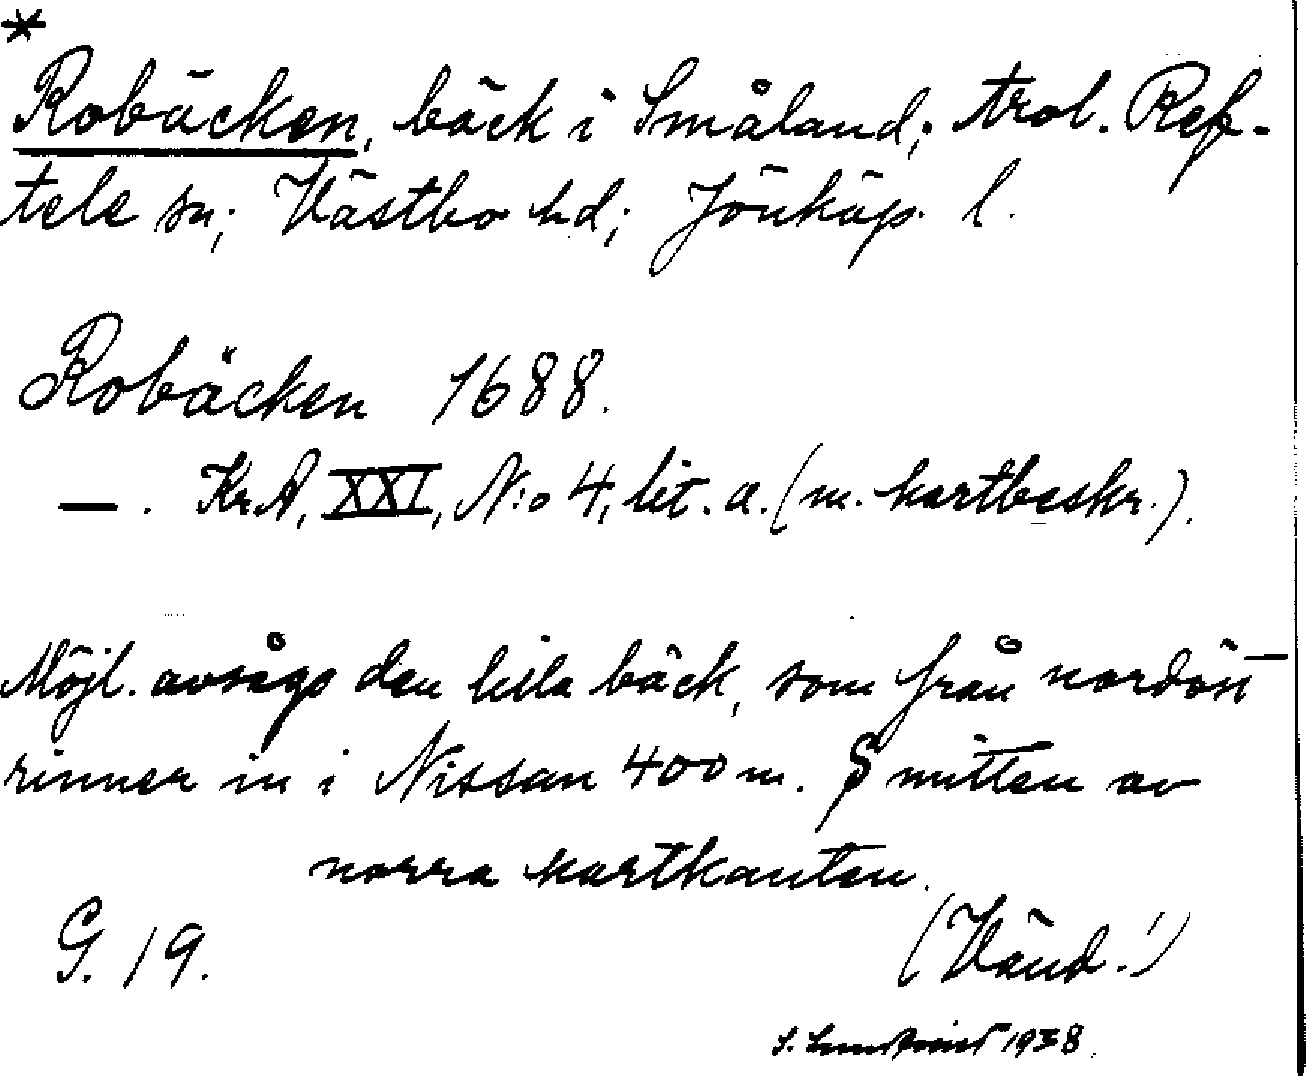 *
Robäcken, bäck i Småland; trol. Ref-
tele sn; Västbo hd; Jönköp. l.
Robäcken 1688.
—. Kr.A, XXI, N:o 4, lit. a. (m. kartbeskr.).
Möjl. avsågs den lilla bäck, som från nordöst
rinner in i Nissan 400 m. S mitten av
norra kartkanten.
G. 19.
(Vänd!)
S. 1938.